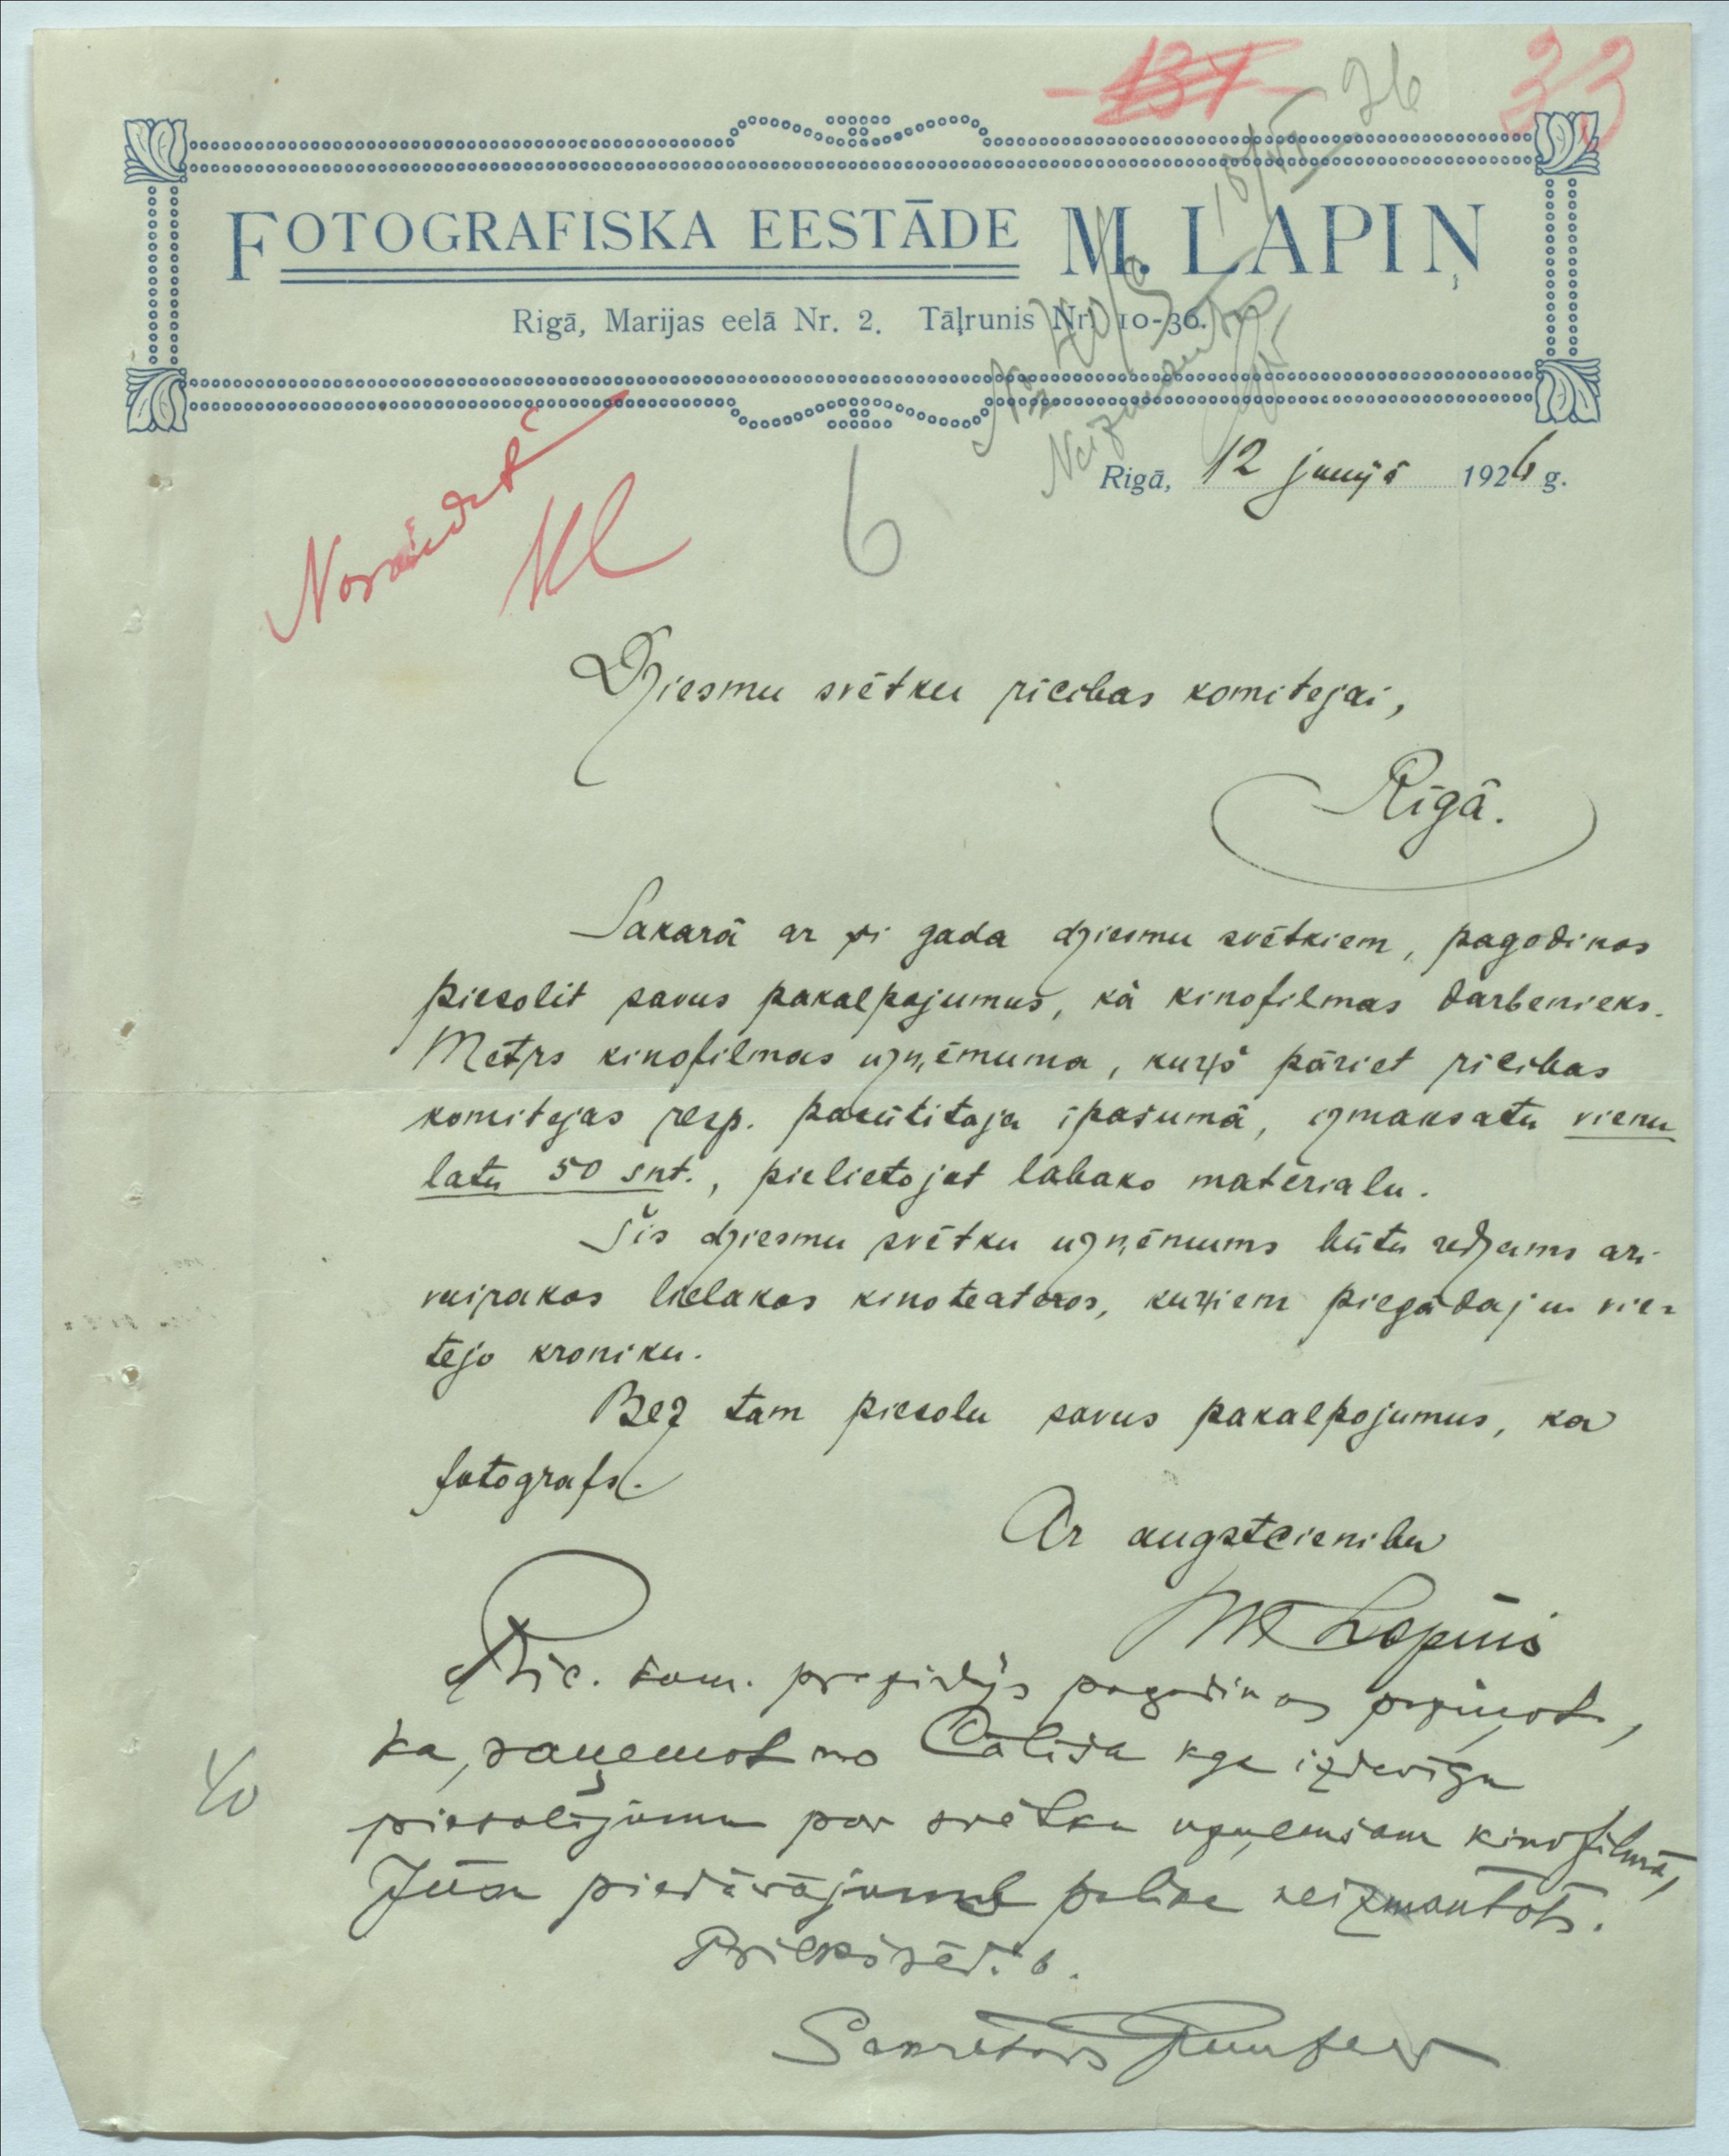 137
33
FOTOGRAFISKA EESTĀDE M. LAPIŅ
Rigā, Marijas eelā Nr. 2. Tāļrunis Nr. 10-36.
Rigā, 12 junijā 1926 g.
Noraidīt
6
Dziesmu svētku rīcibas komitejai,
Rīgā.
Sakarā ar ši gada dziesmu svētkiem, pagodinos
piesolit savus pakalpojumus, kā kinofilmas darbenieks.
Metrs kinofilmas uzņēmuma, kurš pāriet rīcibas
komitejas resp. pasūtitaja īpašumā, izmaksatu vienu
latu 50 snt., pielietojot labako materialu.
Šis dziesmu svētku uzņēmums būtu redzams ari
vairakos lielakos kinoteatros, kuŗiem piegādaju vie-
tejo kroniku.
Bez tam piesolu savus pakalpojumus, ka
fotografs.
Ar augstcienibu
M Lapiņš
Rīc. kom. prezidijs pagodinas paziņot,
ka, saņemot no Cālīša kga izdevīgu
piesolījumu par svētku uzņemšanu kinofilmā,
Jūsu piedāvājums paliek neizmantots.
40
Priekšsēd. b.
Sekretars